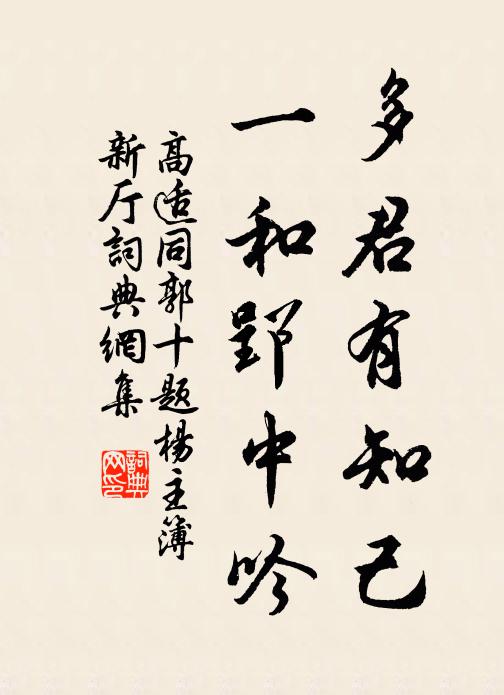 多君有知己
一和郢中吟
高适同郭十题楊主簿
新厅詞典網集
詞典网印